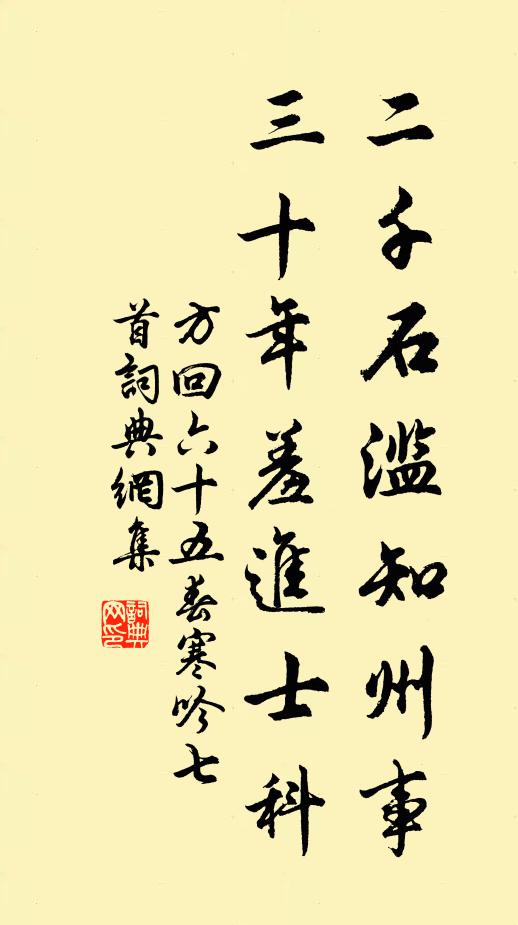 二千石滥知州事
三十年羞進士科
方回六十五春寒吟七
首詞典網集
詞典网印